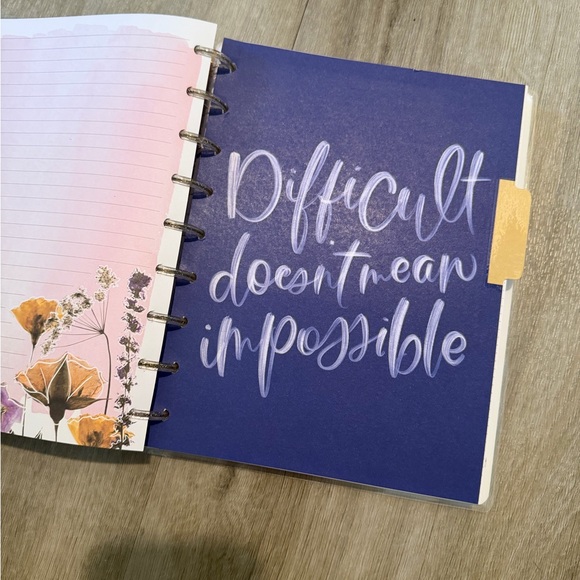 Difficult
doesn't mean
impossible